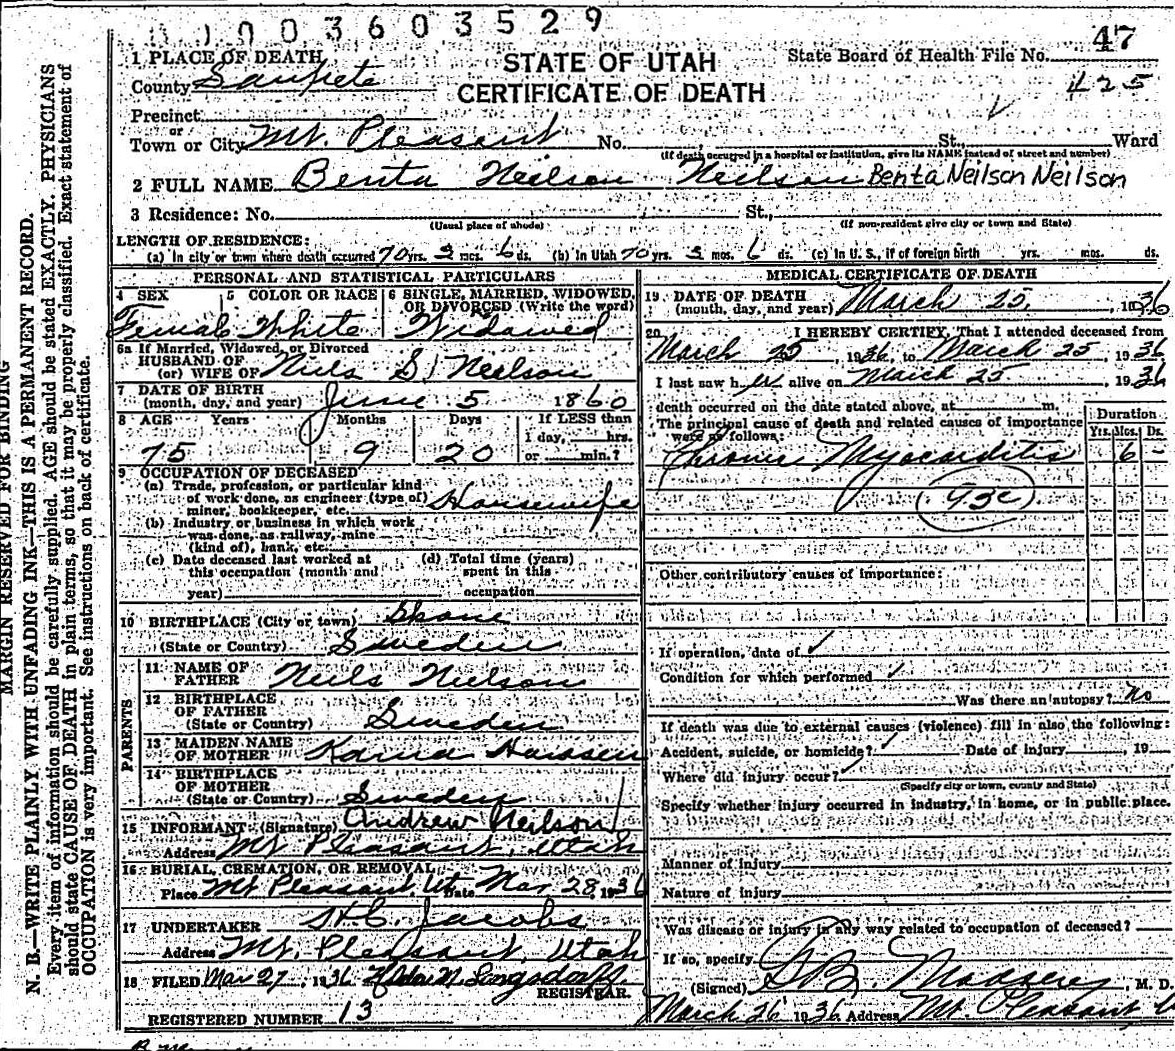 003603529
MARGIN RESERVED FOR BINDING
N. B.—WRITE PLAINLY, WITH UNFADING INK—THIS IS A PERMANENT RECORD.
Every item of information should be carefully supplied. AGE should be stated EXACTLY. PHYSICIANS
should state CAUSE OF DEATH in plain terms, so that it may be properly classified. Exact statement of
OCCUPATION is very important. See instructions on back of certificate.
STATE OF UTAH
CERTIFICATE OF DEATH
State Board of Health File No. 47
425
1 PLACE OF DEATH
County Sanpete
Precinct
or
Town or City Mt. Pleasant No. St., Ward
(If death occurred in a hospital or institution, give its NAME instead of street and number)
2 FULL NAME Benta Neilson Neilson Benta Neilson Neilson
3 Residence: No. St.,
(Usual place of abode) (If non-resident give city or town and State)
LENGTH OF RESIDENCE:
(a) In city or town where death occurred 70 yrs. 3 mos. 6 ds. (b) In Utah 70 yrs. 3 mos. 6 ds. (c) In U. S., if of foreign birth yrs. mos. ds.
PERSONAL AND STATISTICAL PARTICULARS
4 SEX 5 COLOR OR RACE 6 SINGLE, MARRIED, WIDOWED, OR DIVORCED (Write the word)
Female White Widowed
6a If Married, Widowed, or Divorced
HUSBAND OF
(or) WIFE OF Niels S. Neilson
7 DATE OF BIRTH
(month, day, and year) June 5 1860
8 AGE Years Months Days If LESS than
1 day, hrs.
75 9 20 or min.?
9 OCCUPATION OF DECEASED
(a) Trade, profession, or particular kind
of work done, as engineer (type of)
miner, bookkeeper, etc. Housewife
(b) Industry or business in which work
was done, as railway, mine
(kind of), bank, etc.
(c) Date deceased last worked at (d) Total time (years)
this occupation (month and spent in this
year) occupation
10 BIRTHPLACE (City or town) Skane
(State or Country) Sweden
PARENTS
11 NAME OF
FATHER Neils Neilson
12 BIRTHPLACE
OF FATHER
(State or Country) Sweden
13 MAIDEN NAME
OF MOTHER Karna Hanssen
14 BIRTHPLACE
OF MOTHER
(State or Country) Sweden
15 INFORMANT (Signature) Andrew Neilson
Address Mt. Pleasant, Utah
16 BURIAL, CREMATION, OR REMOVAL
Place Mt Pleasant Ut Date Mar 28, 1936
17 UNDERTAKER Jacobs
Address Mt. Pleasant, Utah
18 FILED Mar 27, 1936
REGISTRAR.
REGISTERED NUMBER 13
MEDICAL CERTIFICATE OF DEATH
19 DATE OF DEATH
(month, day, and year) March 25, 1936
20 I HEREBY CERTIFY, That I attended deceased from
March 25, 1936, to March 25, 1936
I last saw h er alive on March 25, 1936
death occurred on the date stated above, at m.
The principal cause of death and related causes of importance
were as follows:
Duration
Yrs. Mos. Ds.
Chronic Myocarditis 6 -
93c
Other contributory causes of importance:
If operation, date of
Condition for which performed
Was there an autopsy? No
If death was due to external causes (violence) fill in also the following:
Accident, suicide, or homicide? Date of injury, 19
Where did injury occur?
(Specify city or town, county and State)
Specify whether injury occurred in industry, in home, or in public place.
Manner of Injury
Nature of Injury
Was disease or injury in any way related to occupation of deceased?
If so, specify
(Signed) M. D.
March 26 1936 Address Mt. Pleasant U